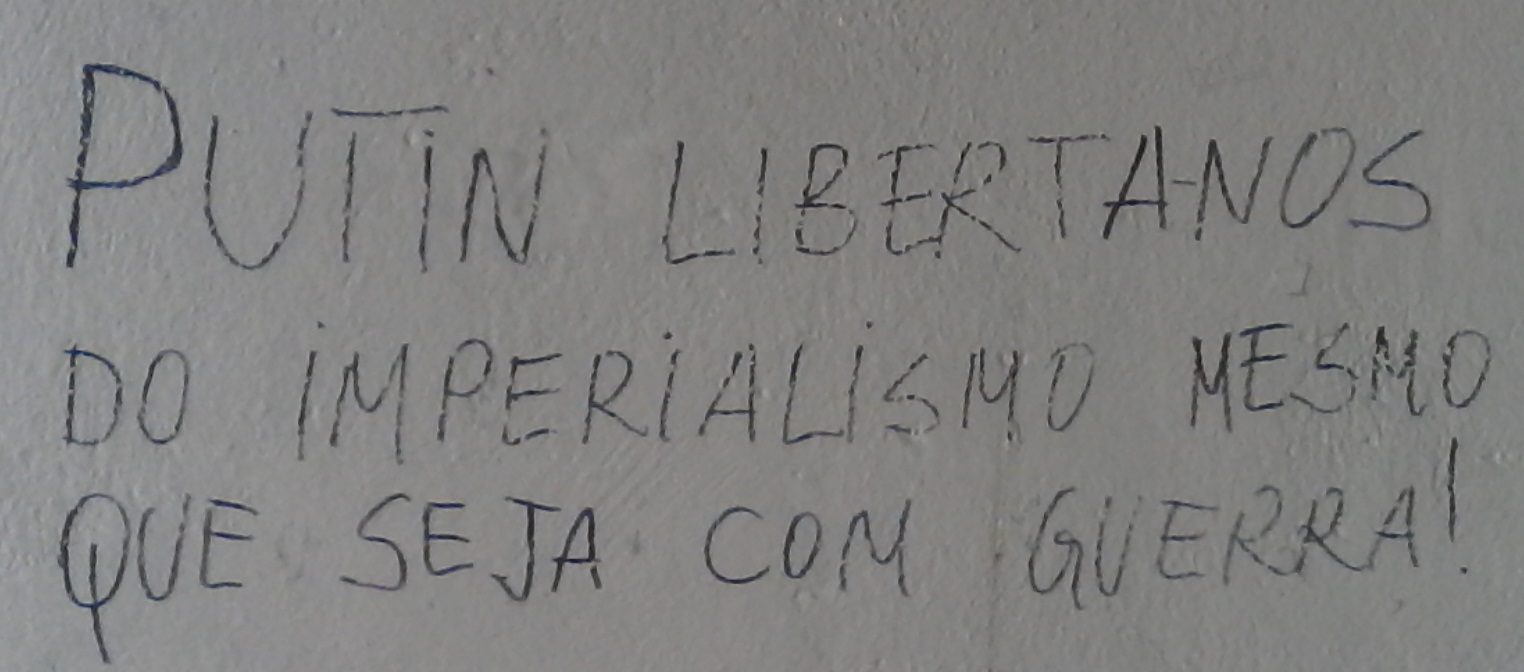 PUTIN LIBERTA-NOS
DO IMPERIALISMO MESMO
QUE SEJA COM GUERRA!